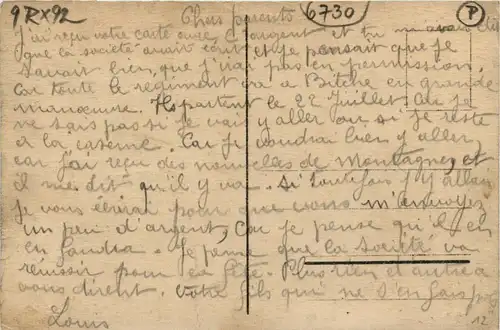 9RX92 6730 P
Chers parents
J'ai reçu votre carte avec l'argent et tu m'avais dit
que la société avait écrit et je pensait que je
saurait bien, que j'irai pas en permission.
Car toute le regiment va a Bitche en grande
manœuvre. Ils partent le 22 Juillet. Car je
ne sais pas si je vais y aller ou si je reste
a la caserne. Car je voudrai bien y aller,
car j'ai reçu des nouvelles de Montagne, et
il me dit qu'il y va. Si toutefois j'y allais
je vous écrirai pour que vous m'envoyez
un peu d'argent, Car je pense qu'il en
en faudra. Je pense que la société va
réussir pour sa fête. Plus rien et autre a
vous dire. Votre fils qui ne s'en fais pas
Louis
12